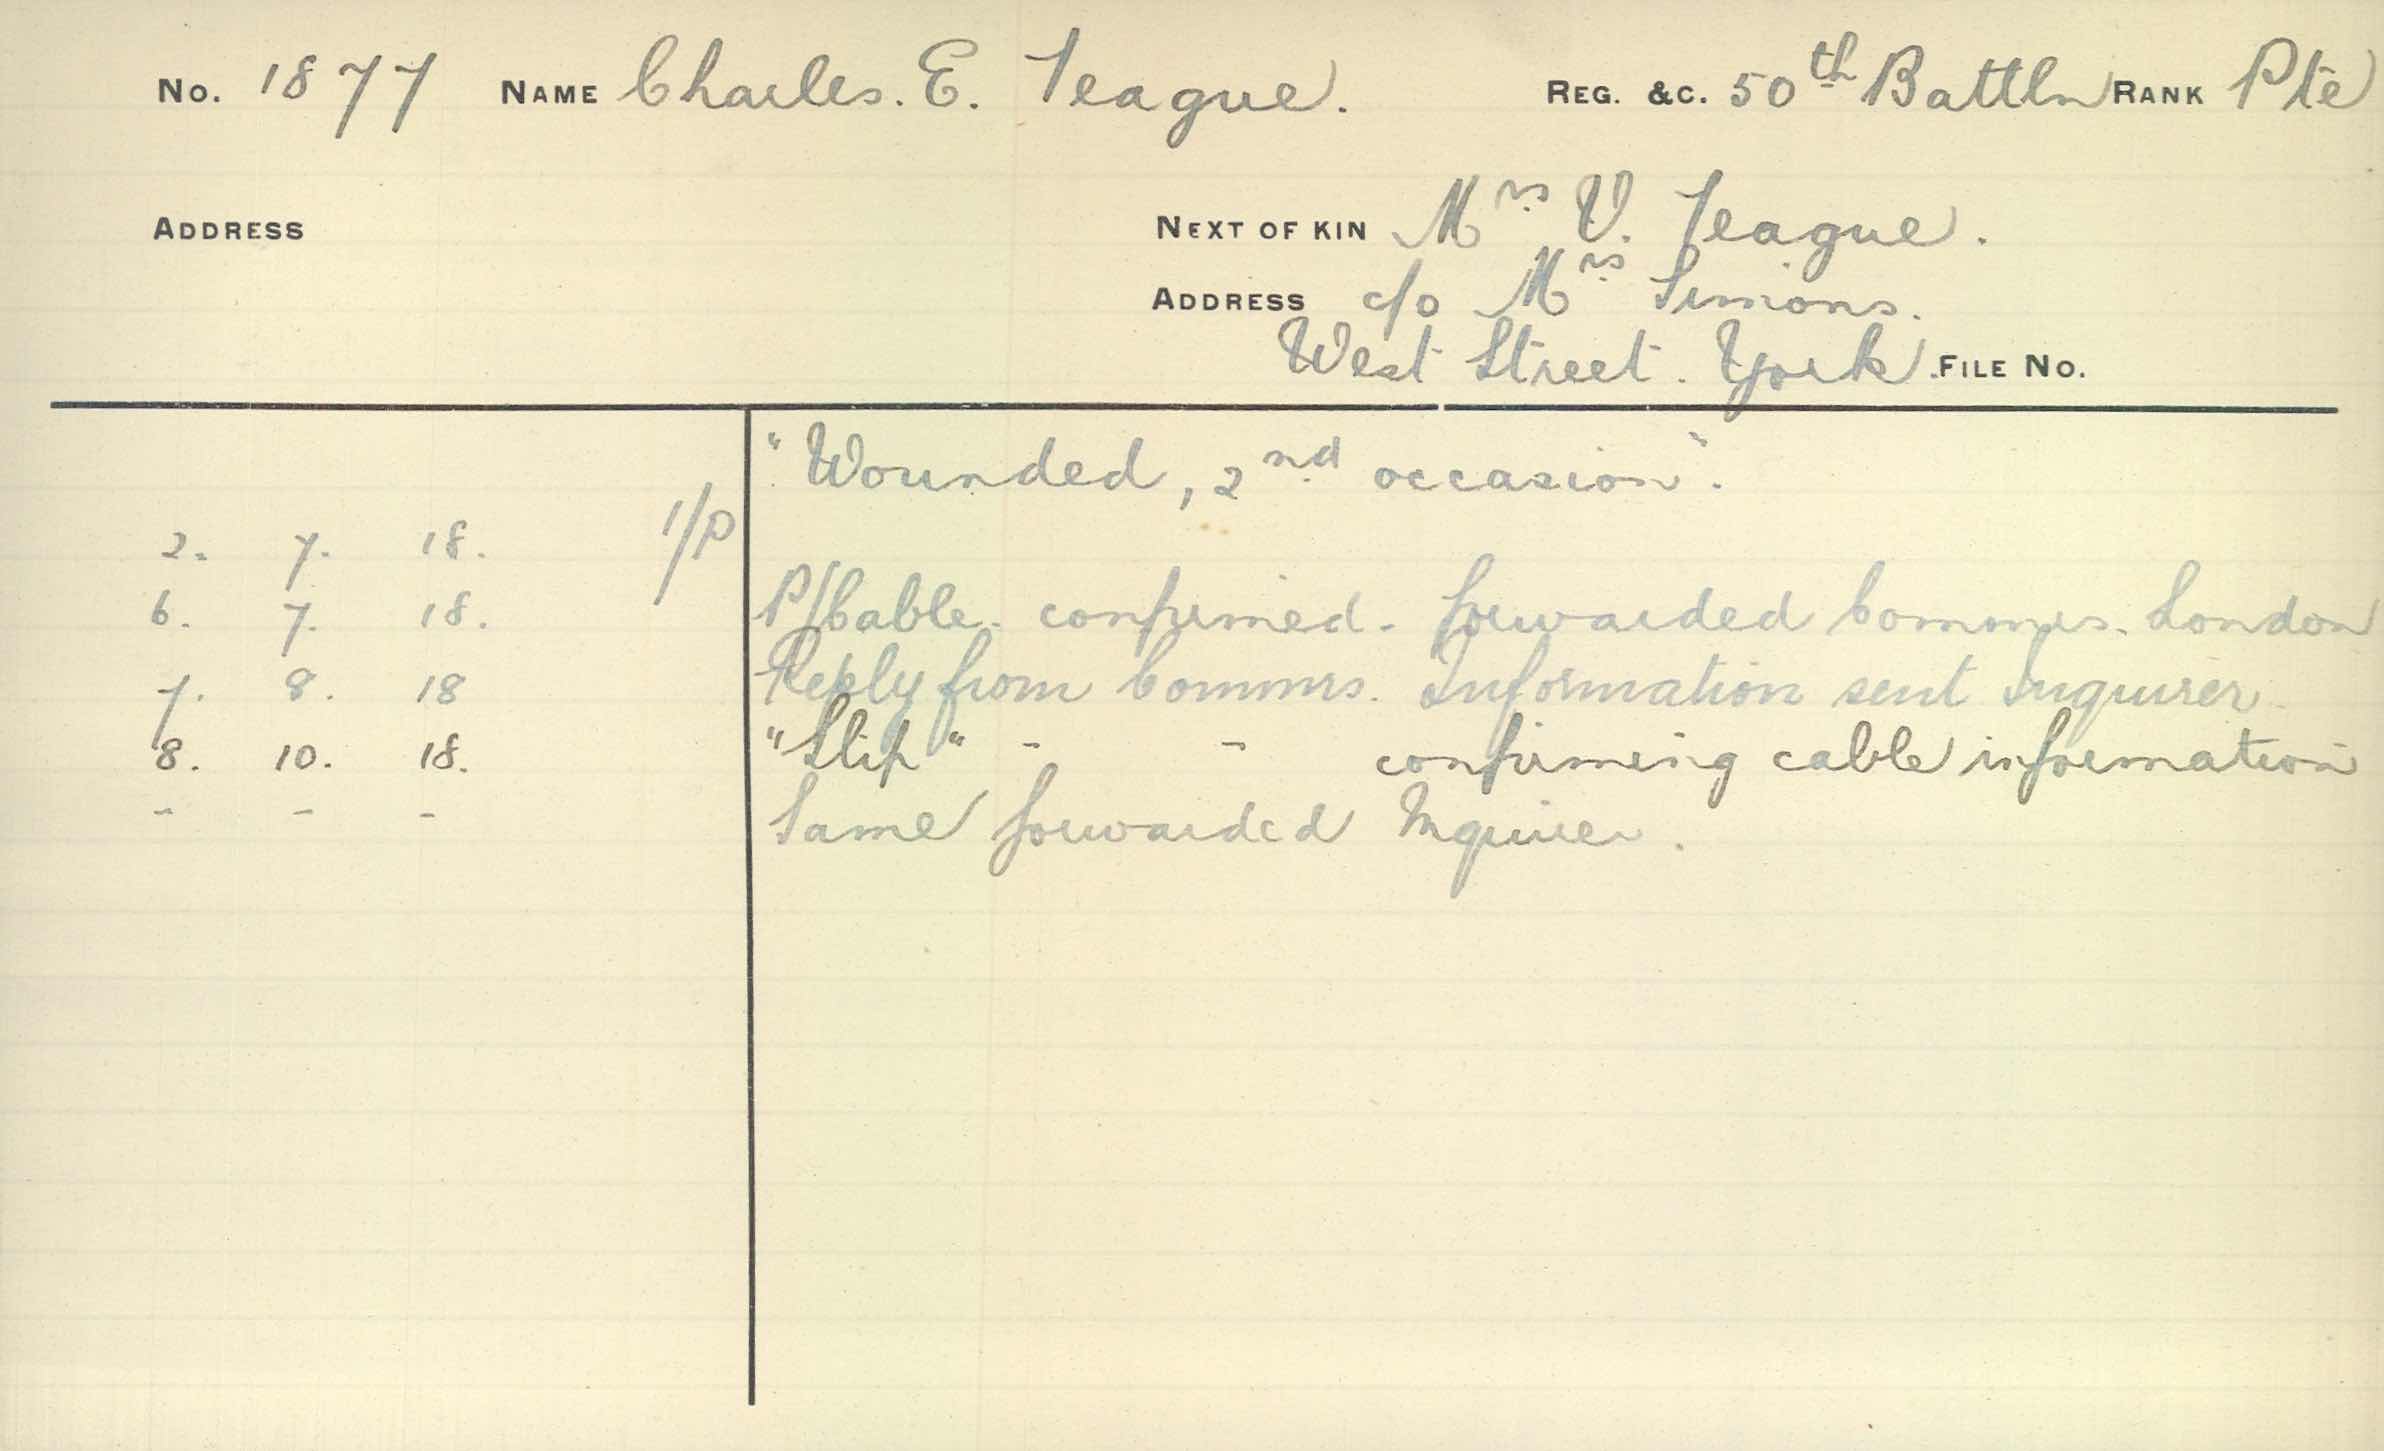 No. 1877 NAME Charles. E. Teague. REG. &C. 50th Battln RANK Pte
ADDRESS NEXT OF KIN Mrs V. Teague.
ADDRESS c/o Mrs Simons.
West Street. York. FILE No.
"Wounded, 2nd occasion".
2. 7. 18. 1/P
6. 7. 18. P/Cable. confirmed. forwarded Commrs. London
7. 8. 18 Reply from Commrs. Information sent Inquirer.
8. 10. 18. "Slip" - - confirming cable information
- - - Same forwarded Inquirer.